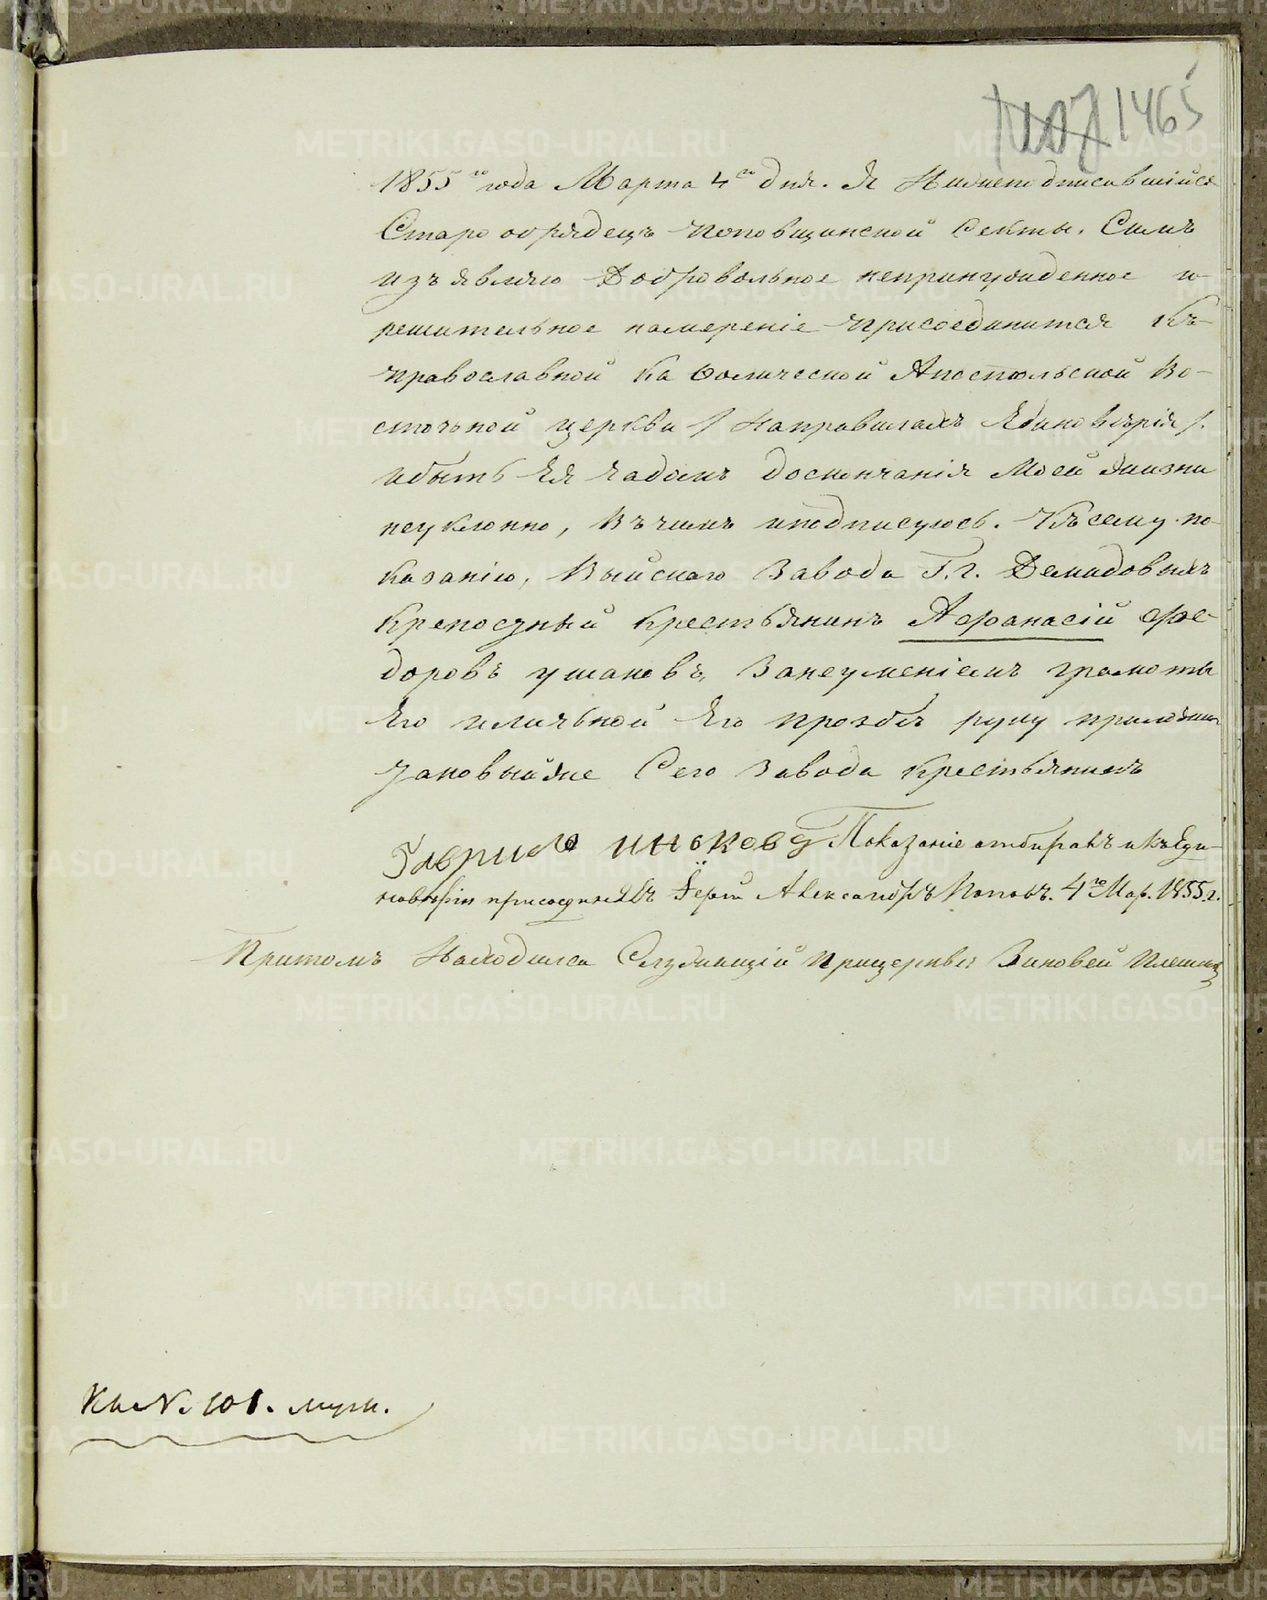 1465
1855го года Марта 4го дня. Я Нижеподписавшійся
Старообрядецъ поповщинской Секты. Симъ
изъявляю Добровольное непринужденное и
решительное намереніе присоединится Къ
православной Каѳолической Апостольской Во-
сточьной церкви / Направилахъ Единоверія /.
ибыть Ея чадомъ доскончанія Моей жизни
неуклонно, Въчемъ иподписуюсь. Къ сему по-
казанію, Выйскаго Завода Г.г. Демидовыхъ
Крепосдный Крестьянинъ Афанасій Фе-
доровъ ушаковъ, Занеуменіемъ грамоты
Его иличьной Его прозбе руку приложилъ
Тановыйже Сего Завода Крестьянинъ
Гаврило иньковъ Показаніе отбиралъ и къ Еди-
новѣрію присоединилъ Іерей Александръ Поповъ. 4го Мар. 1855 г.
Притомъ Находился Служищій прицеркве Зиновей Плешк
Къ №. 101. муж.